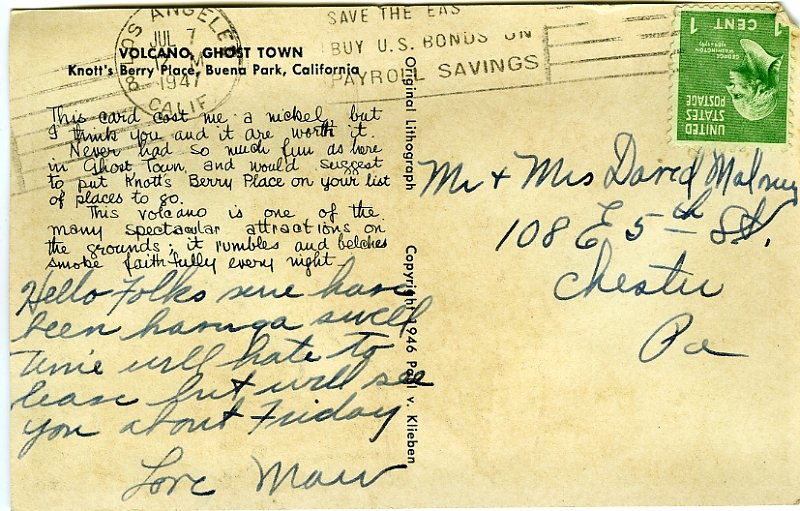 LOS ANGELES
JUL 7
8 PM
1947
CALIF.
SAVE THE EAS
BUY U.S. BONDS ON
PAYROLL SAVINGS
1 CENT 1
GEORGE WASHINGTON
UNITED STATES POSTAGE
VOLCANO, GHOST TOWN
Knott's Berry Place, Buena Park, California
This card cost me a nickel, but
I think you and it are worth it.
Never had so much fun as here
in Ghost Town, and would suggest
to put Knott's Berry Place on your list
of places to go.
This volcano is one of the
many spectacular attractions on
the grounds; it rumbles and belches
smoke faithfully every night
Hello Folks sure have
been having a swell
time will hate to
leave but will see
you about Friday
Love
Original Lithograph
Copyright 1946 Paul v. Klieben
Mr + Mrs David Maloney
108 E 5th St.
Chester
Pa